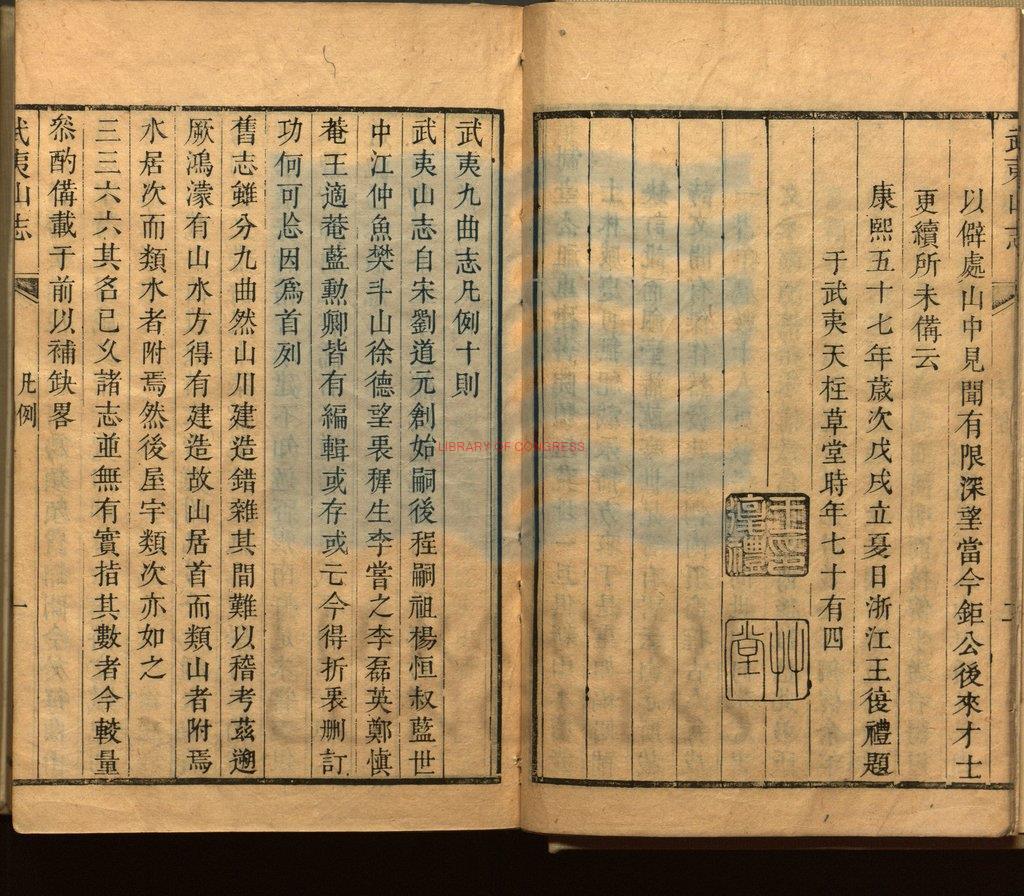 以僻處山中見聞有限深望當今鉅公後來才士
更續所未備云
康熙五十七年歲次戊戌立夏日浙江王復禮題
于武夷天柱草堂時年七十有四
草堂
武夷九曲志凡例十則
武夷山志自宋劉道元創始嗣後程嗣祖楊恒叔藍世
中江仲魚樊斗山徐德望裵穉生李嘗之李磊英鄭慎
菴王適菴藍勲卿皆有編輯或存或亡今得折衷刪訂
功何可忘因爲首列
舊志雖分九曲然山川建造錯雜其間難以稽考茲遡
厥鴻濛有山水方得有建造故山居首而類山者附焉
水居次而類水者附焉然後屋宇類次亦如之
三三六六其名已久諸志並無有實指其數者今較量
叅酌備載于前以補缺畧
武夷山志
凡例
一
LIBRARY OF CONGRESS